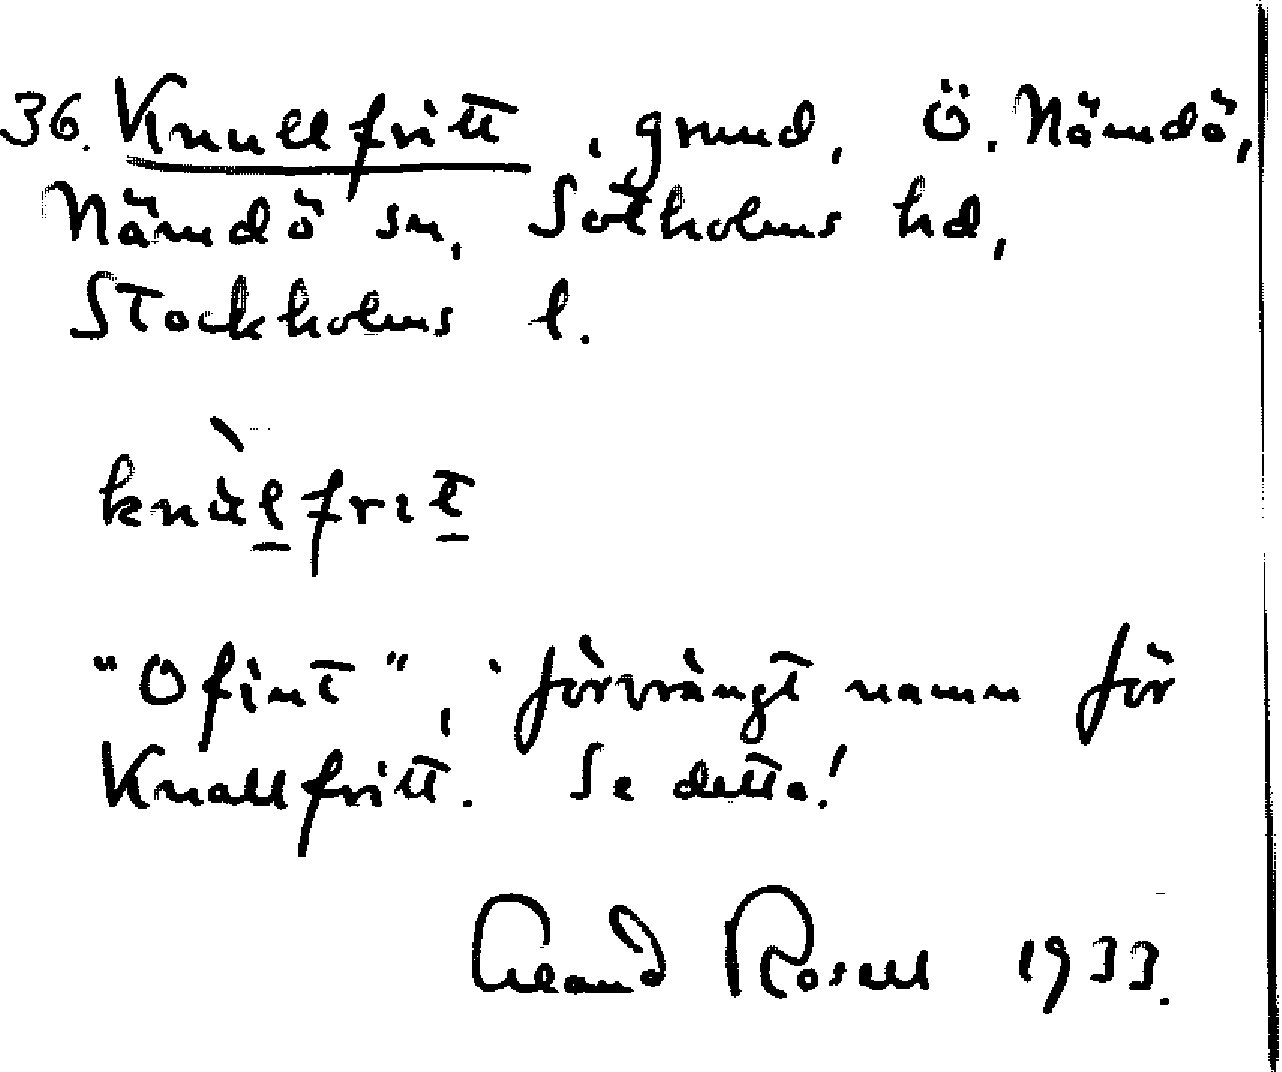 36. Knullfritt, grund, Ö. Nämdö,
Nämdö sn, Sotholms hd,
Stockholms l.
knùlfrit
"Ofint", förvrängt namn för
Knallfritt. Se detta!
Rosell 1933.